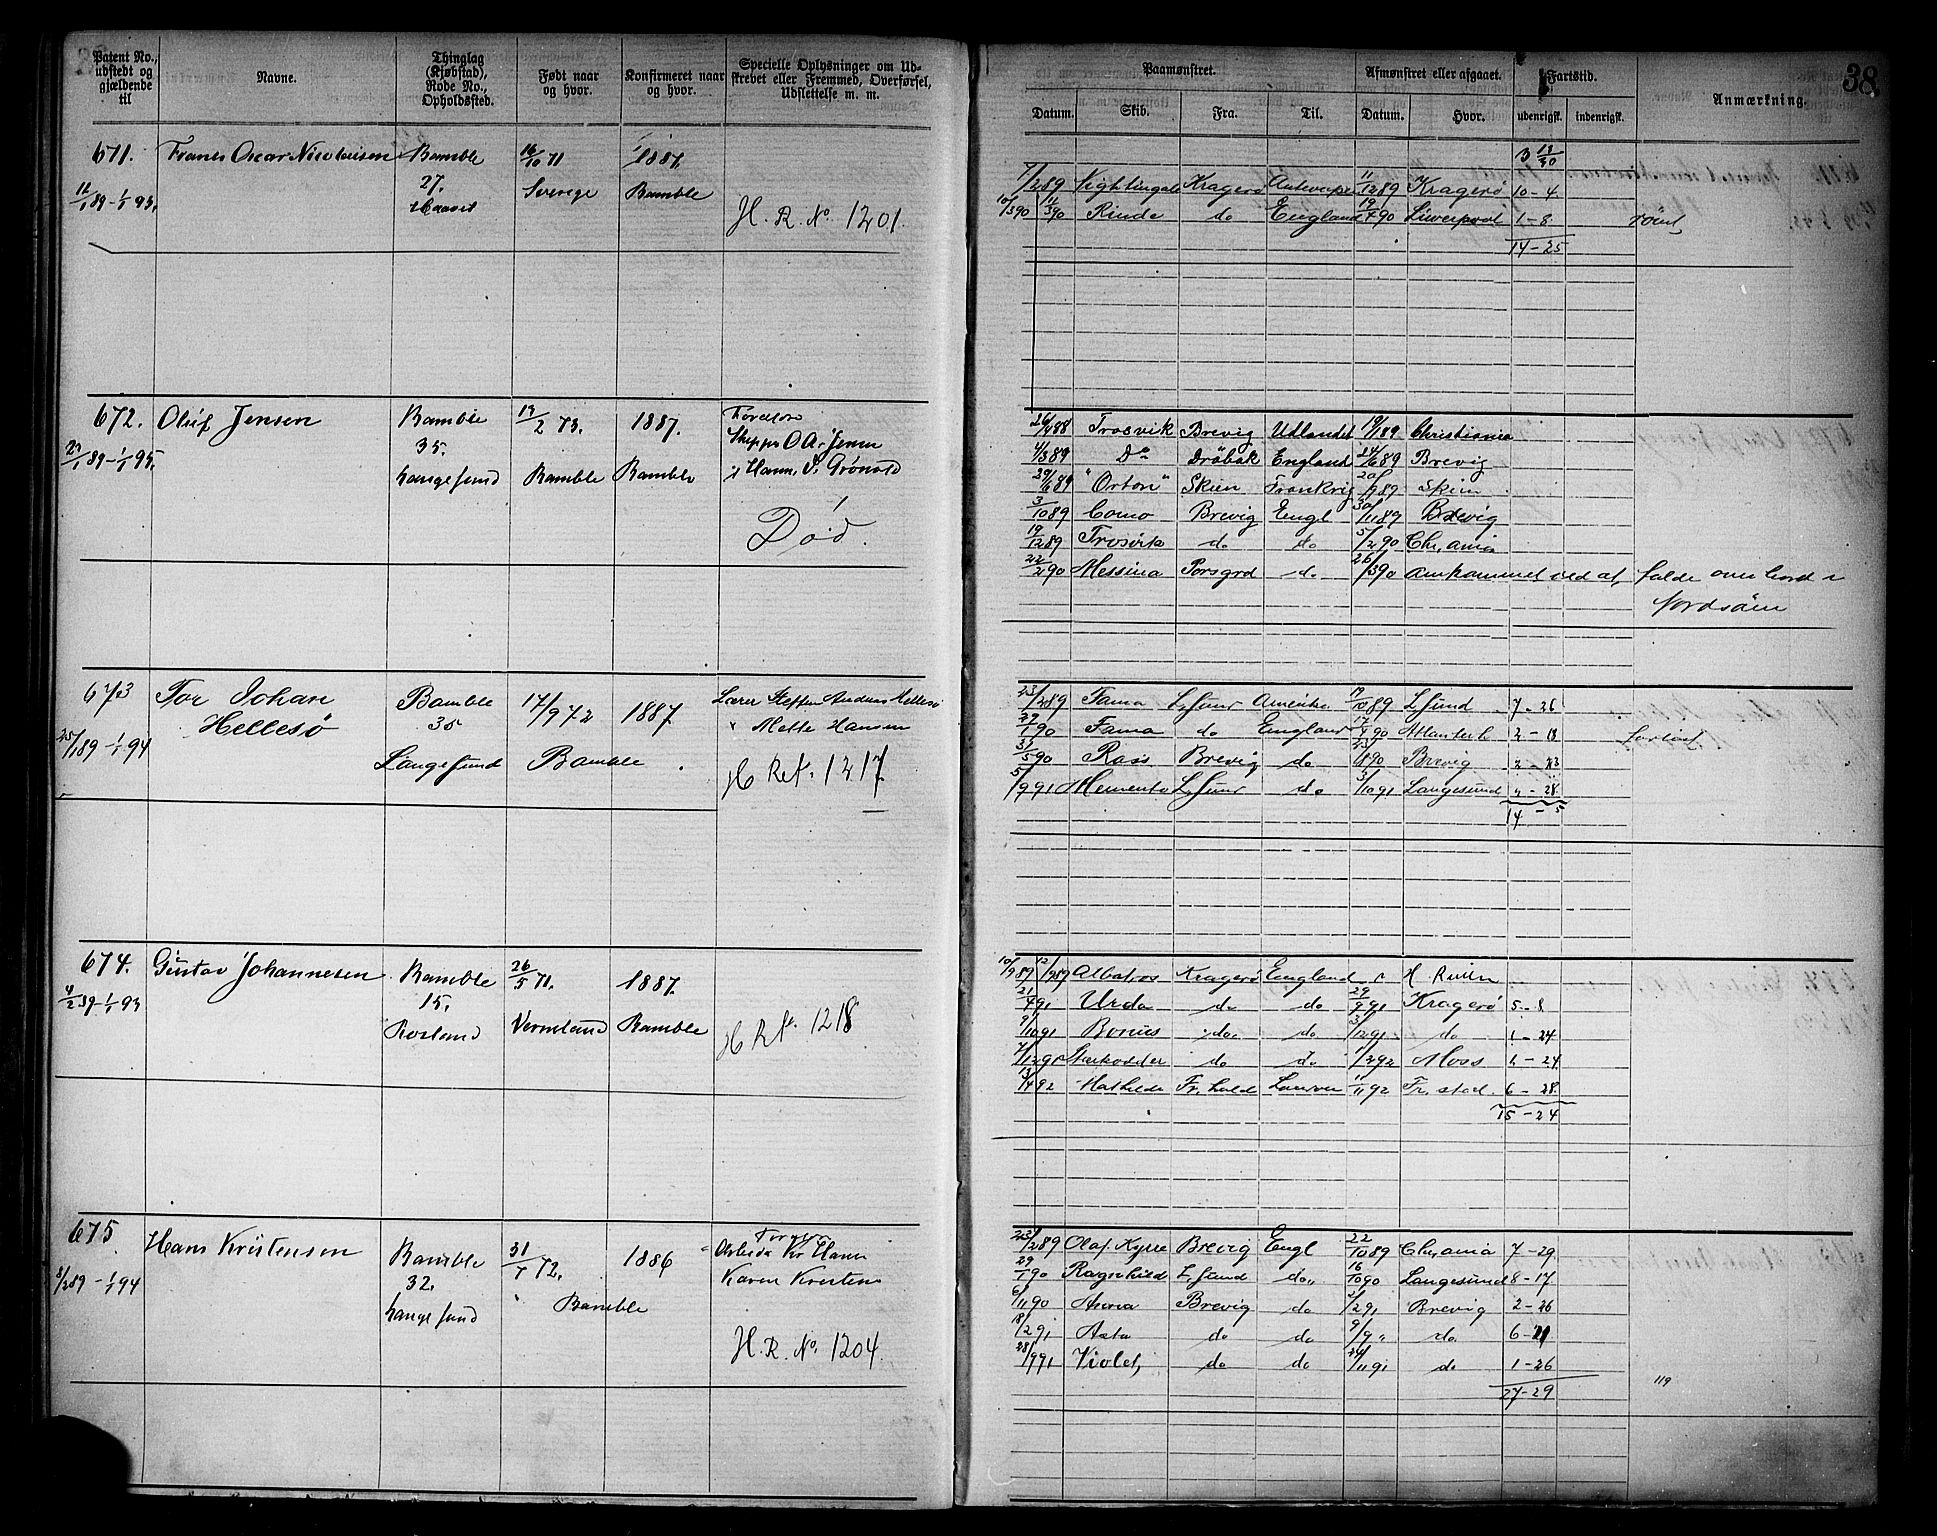 Patent No., udstedt og gjældende til
Navne.
Thinglag (Kjøbstad), Rode No., Opholdssted.
Født naar og hvor.
Konfirmeret naar og hvor.
Specielle Oplysninger om Udskrebet eller Fremmed, Overførsel, Udslettelse m. m.
Paamønstret.
Afmønstret eller afgaaet.
Fartstid.
Anmærkning.
38.
Datum. Skib. Fra. Til. Datum. Hvor. udenrigsk. indenrigsk.
671. Frants Oscar Nicolaisen Bamble 16/10 71 1887.
27. Sverige Bamble
H. R. No. 1201.
7/2 89 Nightingale Kragerø Antwerpen 11/12 89 Kragerø 10-4
11/3 90 Rinde do England 19/4 90 Liwerpool 1-8 rømt
14-25
672. Oluf Jensen Bamble 19/2 73. 1887. Forældre
35.
Langesund Bamble Bamble
Død.
26/4 88 Trosvik Brevig Udlandet 19/1 89 Christiania
4/3 89 Do Drøbak England 24/6 89 Brevig
29/6 89 "Orton" Skien Frankrig 20/9 89 Skien
3/10 89 Como Brevig Engl 30/11 89 Brevig
19/12 89 Trosvik do do 5/2 90 Chr,ania
22/2 90 Messina Porsgrd do 26/3 90 Omkommet ved at falde over bord i
Nordsøen
673 Tor Johan Bamble 17/9 72 1887 Lærer Steffen Andreas Hellesø
Hellesø 35 Mette Hansen
25/1 89-1/1 94 Langesund Bamble
H Ref. 1217
23/2 89 Fama L,sund Amerika 19/10 89 L,sund 7-26
Fama do England Atlanterh 2-13 forlist
31/5 90 Ross Brevig do Brevig 2-23
5/9 91 Memento L,sund do 3/10 91 Langesund
14-5
674. Gustav Johannesen Bamble 26/5 71. 1887.
4/2 89-1/1 93 15.
Rosland Vermland Bamble
H Rf. 1218
Albatros Kragerø England
21/4 91 Urda do do 29/9 91 Kragerø 5-8
9/10 91 Bonus do do 3/12 91 do 1-24
Stærkodder do do 1/3 92 Moss 1-24
13/4 92 Mathilde Fr.hald 1/11 92 Fr.stad. 6-28
15-24
675 Hans Kristensen Bamble 31/7 72. 1886
8/2 89-1/1 94 32. Karen Kristens
Langesund Bamble
H. R. No. 1204.
23/2 89 Olaf Kyrre Brevig Engl 22/10 89 Chr,ania 7-29
29/1 90 Ragnhild L,sund do 16/10 90 Langesund 8-17
6/11 90 Anna Brevig do 2/2 91 Brevig 2-26
18/2 91 Asta do do 9/9 " do 6-21
28/9 91 Violet, do do 24/11 91 do 1-26
27-29
119